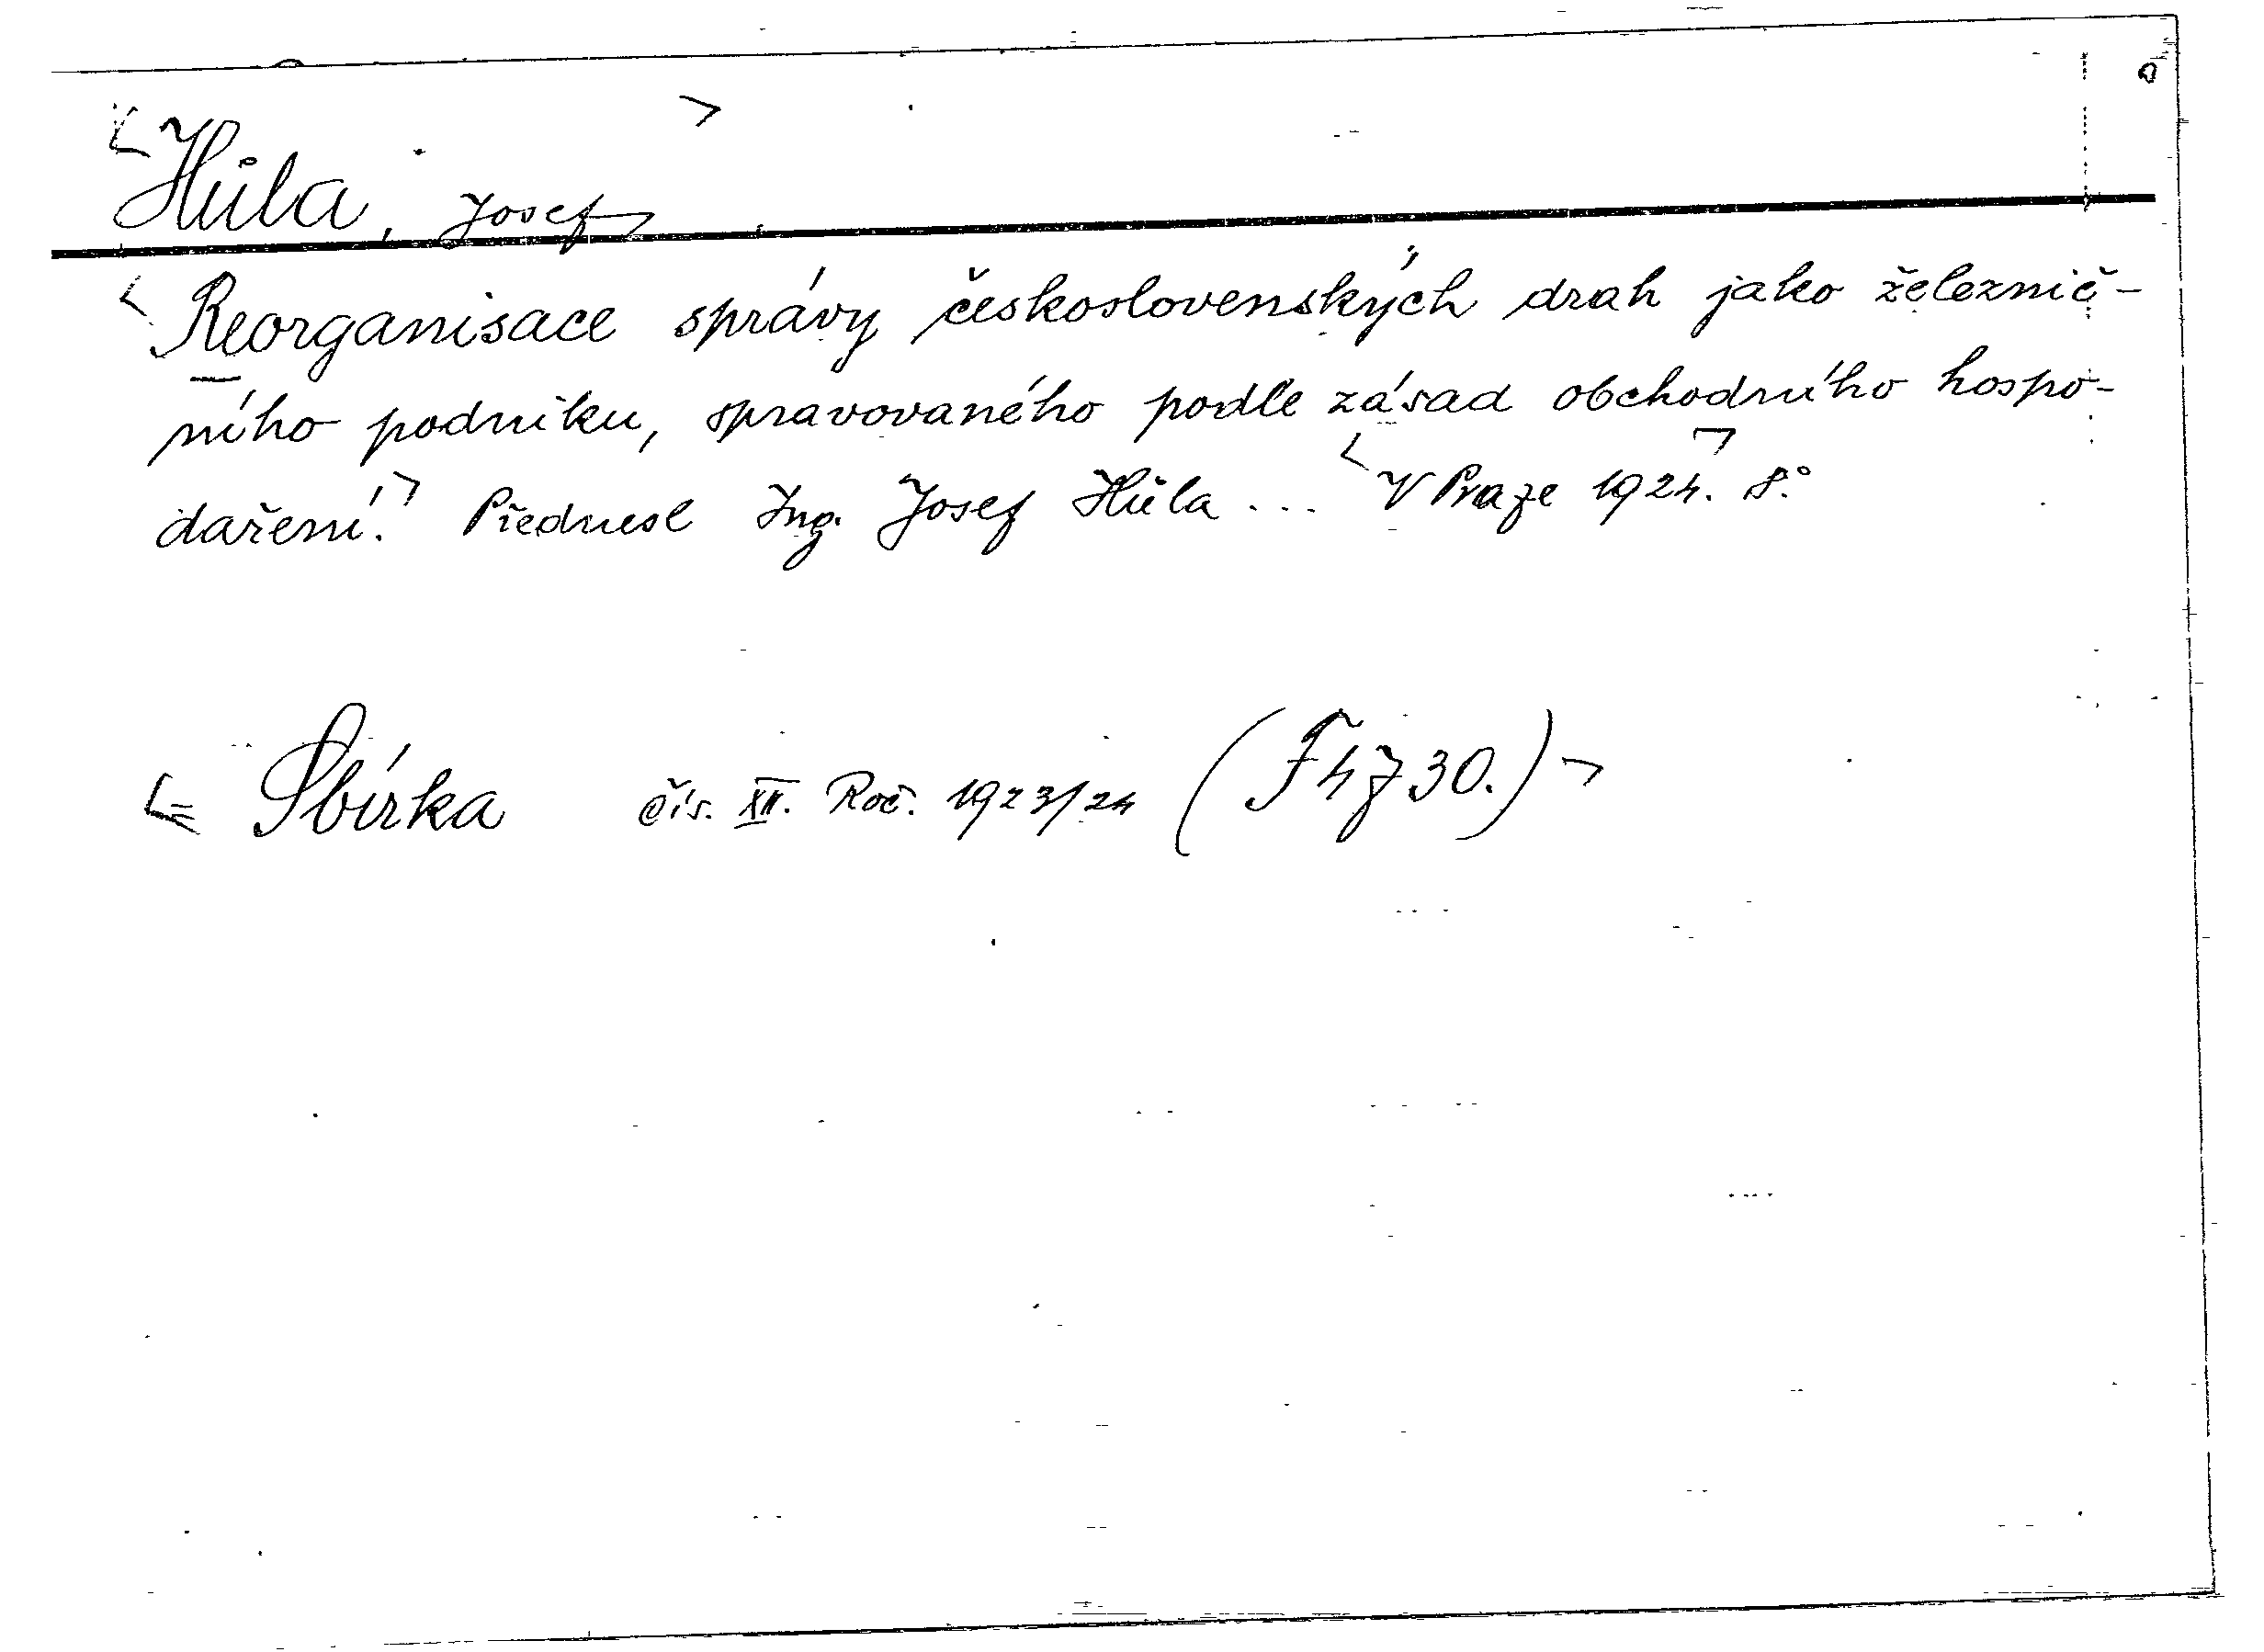 Hůla, Josef
Reorganisace správy československých drah jako železnič-
ního podniku, spravovaného podle zásad obchodního hospo-
daření. Přednesl Ing. Josef Hůla ... V Praze 1924. 8°
Sbírka čís. XII. Roč. 1923/24 (F h 30.)